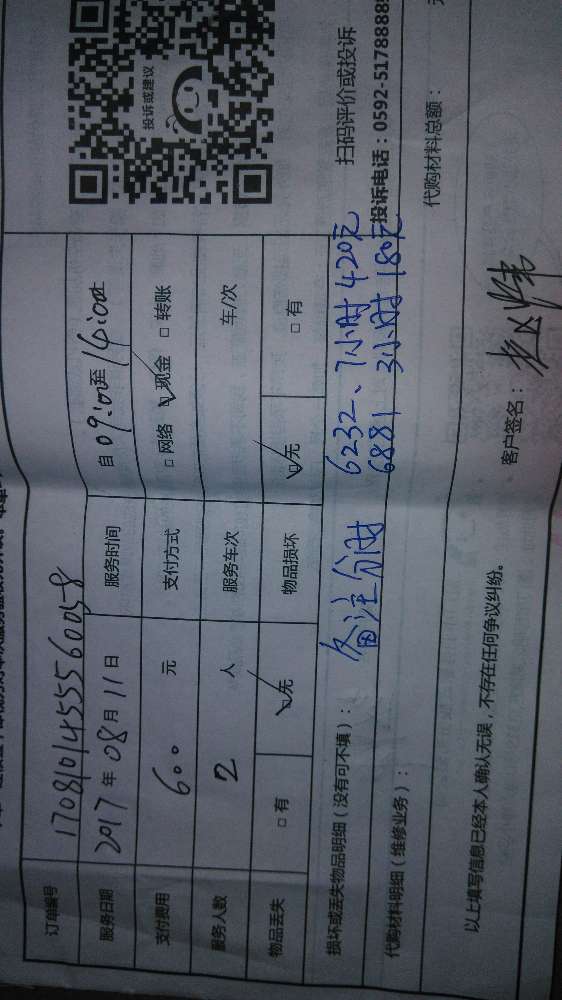 订单编号 1708101455560058
服务日期 2017 年 08 月 11 日 服务时间 自 09:00 至 14:00
支付费用 600 元 支付方式 □ 网络 ☑ 现金 □ 转账
服务人数 2 人 服务车次 车/次
物品丢失 □ 有 ☑ 无 物品损坏 ☑ 无 □ 有
投诉或建议
损坏或丢失物品明细（没有可不填）： 备注分时 6232、7小时 420元
6881 3小时 180元
扫码评价或投诉
投诉电话：0592-5178888
代购材料明细（维修业务）：
代购材料总额： 元
以上填写信息已经本人确认无误，不存在任何争议纠纷。
客户签名：